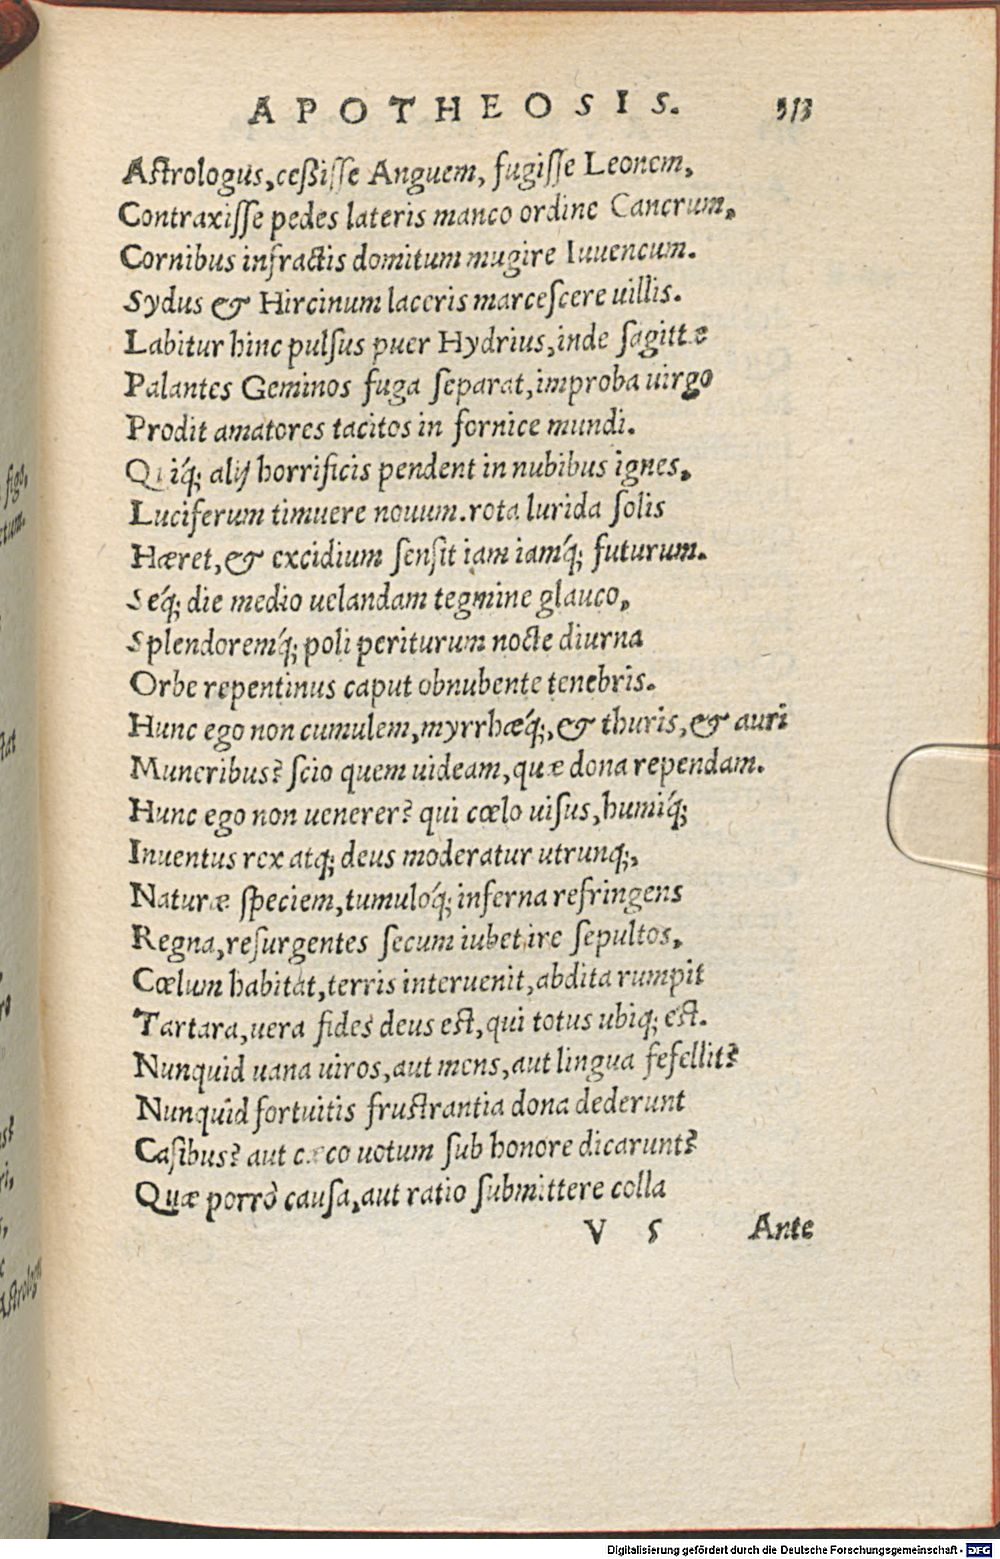 APOTHEOSIS. 313
Astrologus, ceßisse Anguem, fugisse Leonem,
Contraxisse pedes lateris manco ordine Cancrum,
Cornibus infractis domitum mugire Iuuencum.
Sydus & Hircinum laceris marcescere uillis.
Labitur hinc pulsus puer Hydrius, inde sagittæ
Palantes Geminos fuga separat, improba uirgo
Prodit amatores tacitos in fornice mundi.
Quiq́; alij horrificis pendent in nubibus ignes,
Luciferum timuere nouum. rota lurida solis
Hæret, & excidium sensit iam iamq́; futurum.
Seq́; die medio uelandam tegmine glauco,
Splendoremq́; poli periturum nocte diurna
Orbe repentinus caput obnubente tenebris.
Hunc ego non cumulem, myrrhæq́;, & thuris, & auri
Muneribus? scio quem uideam, quæ dona rependam.
Hunc ego non uenerer? qui cœlo uisus, humiq́;
Inuentus rex atq; deus moderatur utrunq;,
Naturæ speciem, tumuloq́; inferna refringens
Regna, resurgentes secum iubet ire sepultos,
Cœlum habitat, terris interuenit, abdita rumpit
Tartara, uera fides deus est, qui totus ubiq; est.
Nunquid uana uiros, aut mens, aut lingua fefellit?
Nunquid fortuitis frustrantia dona dederunt
Casibus? aut cæco uotum sub honore dicarunt?
Quæ porrò causa, aut ratio submittere colla
V 5 Ante
figo,
Astrolog
Digitalisierung gefördert durch die Deutsche Forschungsgemeinschaft - DFG